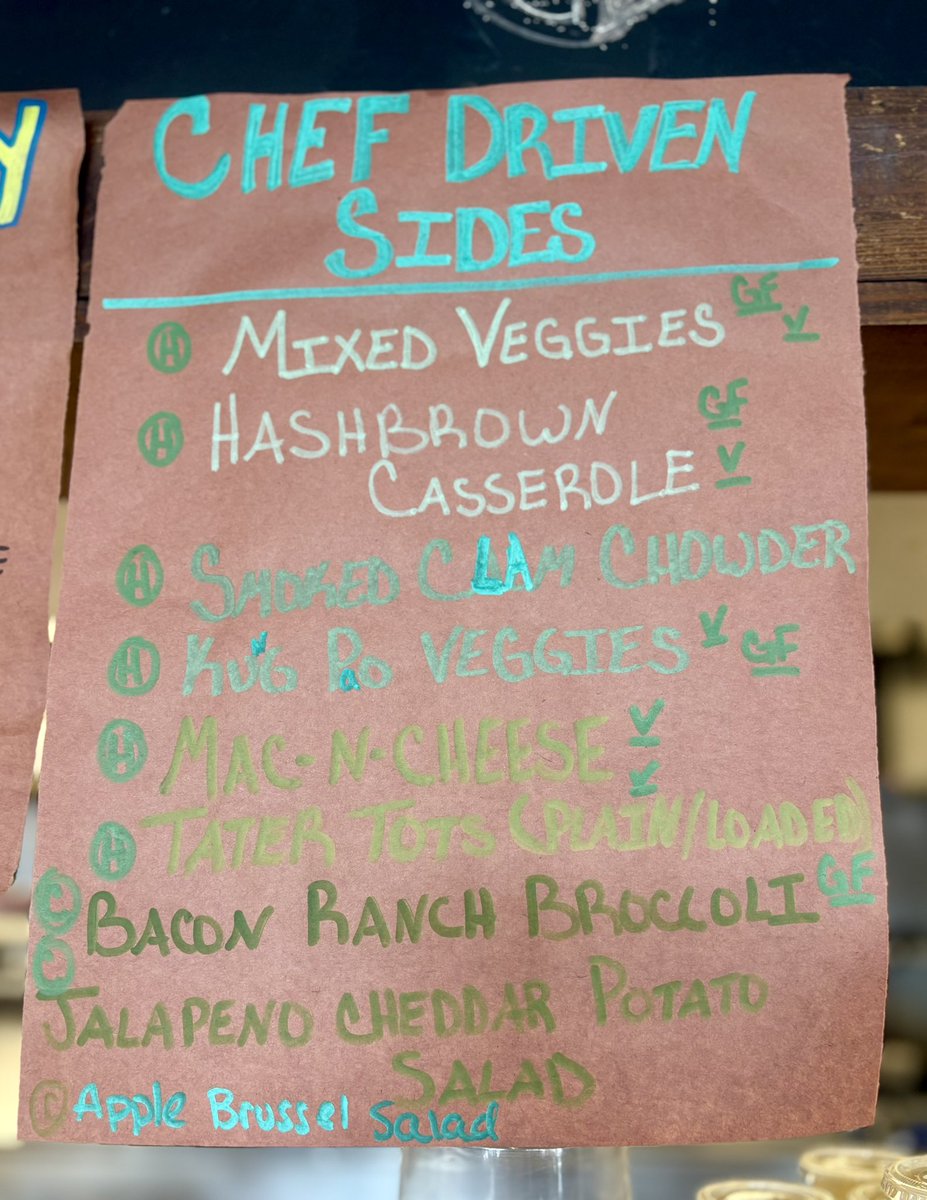 Y
CHEF DRIVEN
SIDES
H MIXED VEGGIES GF V
H HASHBROWN GF
CASSEROLE V
H SMOKED CLAM CHOWDER
H KUNG PaO VEGGIES V GF
H MAC-N-CHEESE V
H TATER TOTS (PLAIN/LOADED) V
C BACON RANCH BROCCOLI GF
C JALAPENO CHEDDAR POTATO
SALAD
C Apple Brussel Salad